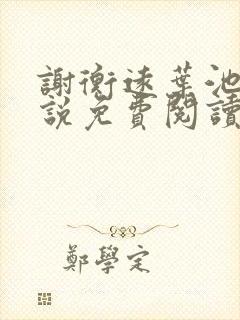 謝衡遠葉池
說免費閱讀
鄭學定